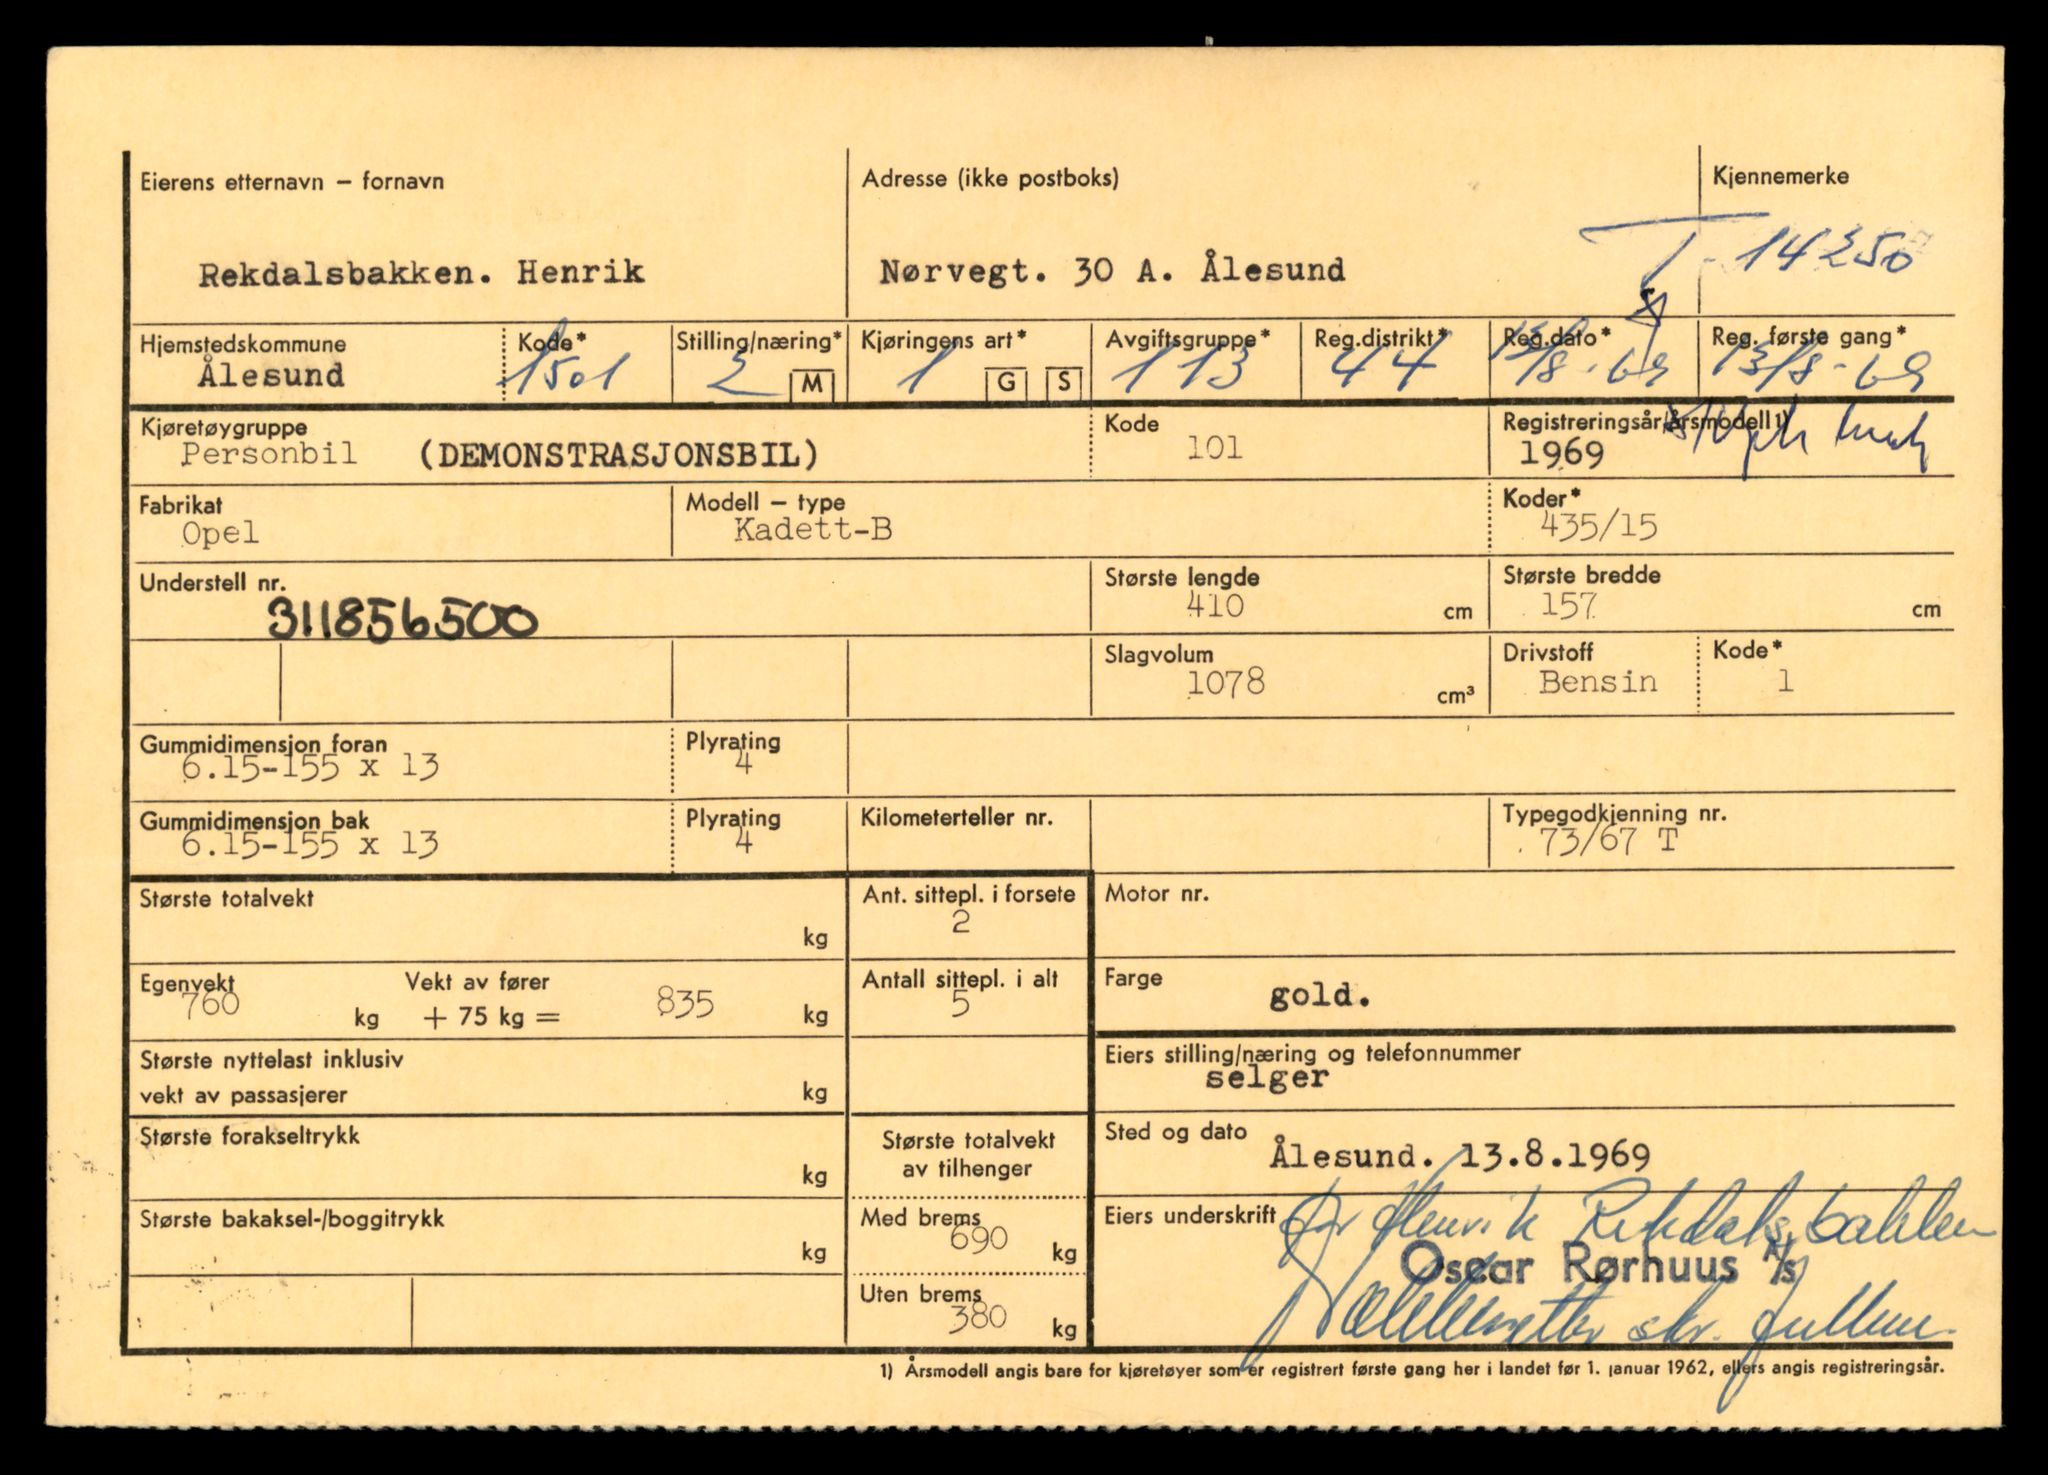 Eierens etternavn – fornavn
Adresse (ikke postboks)
Kjennemerke
Rekdalsbakken. Henrik
Nørvegt. 30 A. Ålesund
T - 14250
Hjemstedskommune
Kode*
Stilling/næring*
Kjøringens art*
Avgiftsgruppe*
Reg.distrikt*
Reg.dato*
Reg. første gang*
Ålesund
1501
2
M
1
G
S
113
44
13/8-69
13/8-69
Kjøretøygruppe
Kode
Registreringsår/årsmodell 1)
Personbil (DEMONSTRASJONSBIL)
101
1969
Fabrikat
Modell – type
Koder*
Opel
Kadett-B
435/15
Understell nr.
Største lengde
Største bredde
311856500
410 cm
157 cm
Slagvolum
Drivstoff
Kode*
1078 cm³
Bensin
1
Gummidimensjon foran
Plyrating
6.15-155 x 13
4
Gummidimensjon bak
Plyrating
Kilometerteller nr.
Typegodkjenning nr.
6.15-155 x 13
4
73/67 T
Største totalvekt
kg
Ant. sittepl. i forsete
2
Motor nr.
Egenvekt
Vekt av fører
Antall sittepl. i alt
Farge
760 kg + 75 kg = 835 kg
5
gold.
Største nyttelast inklusiv
vekt av passasjerer
kg
Eiers stilling/næring og telefonnummer
selger
Største forakseltrykk
kg
Største totalvekt
av tilhenger
Sted og dato
Ålesund. 13.8.1969
Største bakaksel-/boggitrykk
kg
Med brems
690 kg
Eiers underskrift
for Henrik Rekdalsbakken
Oscar Rørhuus A/S
Uten brems
380 kg
1) Årsmodell angis bare for kjøretøyer som er registrert første gang her i landet før 1. januar 1962, ellers angis registreringsår.